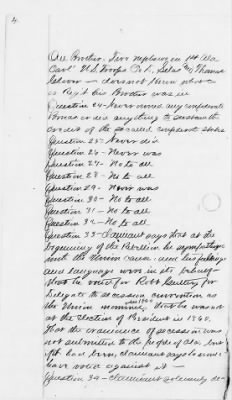 4
One Brother. Two nephews in 1st Ala
Cav U.S. Troops
does not know what
or Reg't his Brother was in
Question 24 - Never owned any confederate
bonds or did anything to sustain the
credit of the so called confederate states
Question 25 - Never did
Question 26 - Never was
Question 27 - No to all
Question 28 - No to all
Question 29 - Never was
Question 30 - No to all
Question 31 - No to all
Question 32 - No to all
Question 33 - Claimant says that at the
beginning of the Rebellion he sympathized
with the Union cause and his feelings
and language were in its behalf
that he voted for Robt Guttery for
Delegate to secession convention as
the Union nominee
at the Election of President in 1860.
that the ordinance of secession was
not submitted to the people of Ala, but
if it had been, claimant says he would
have voted against it -
Question 34 - Claimant solemnly de-